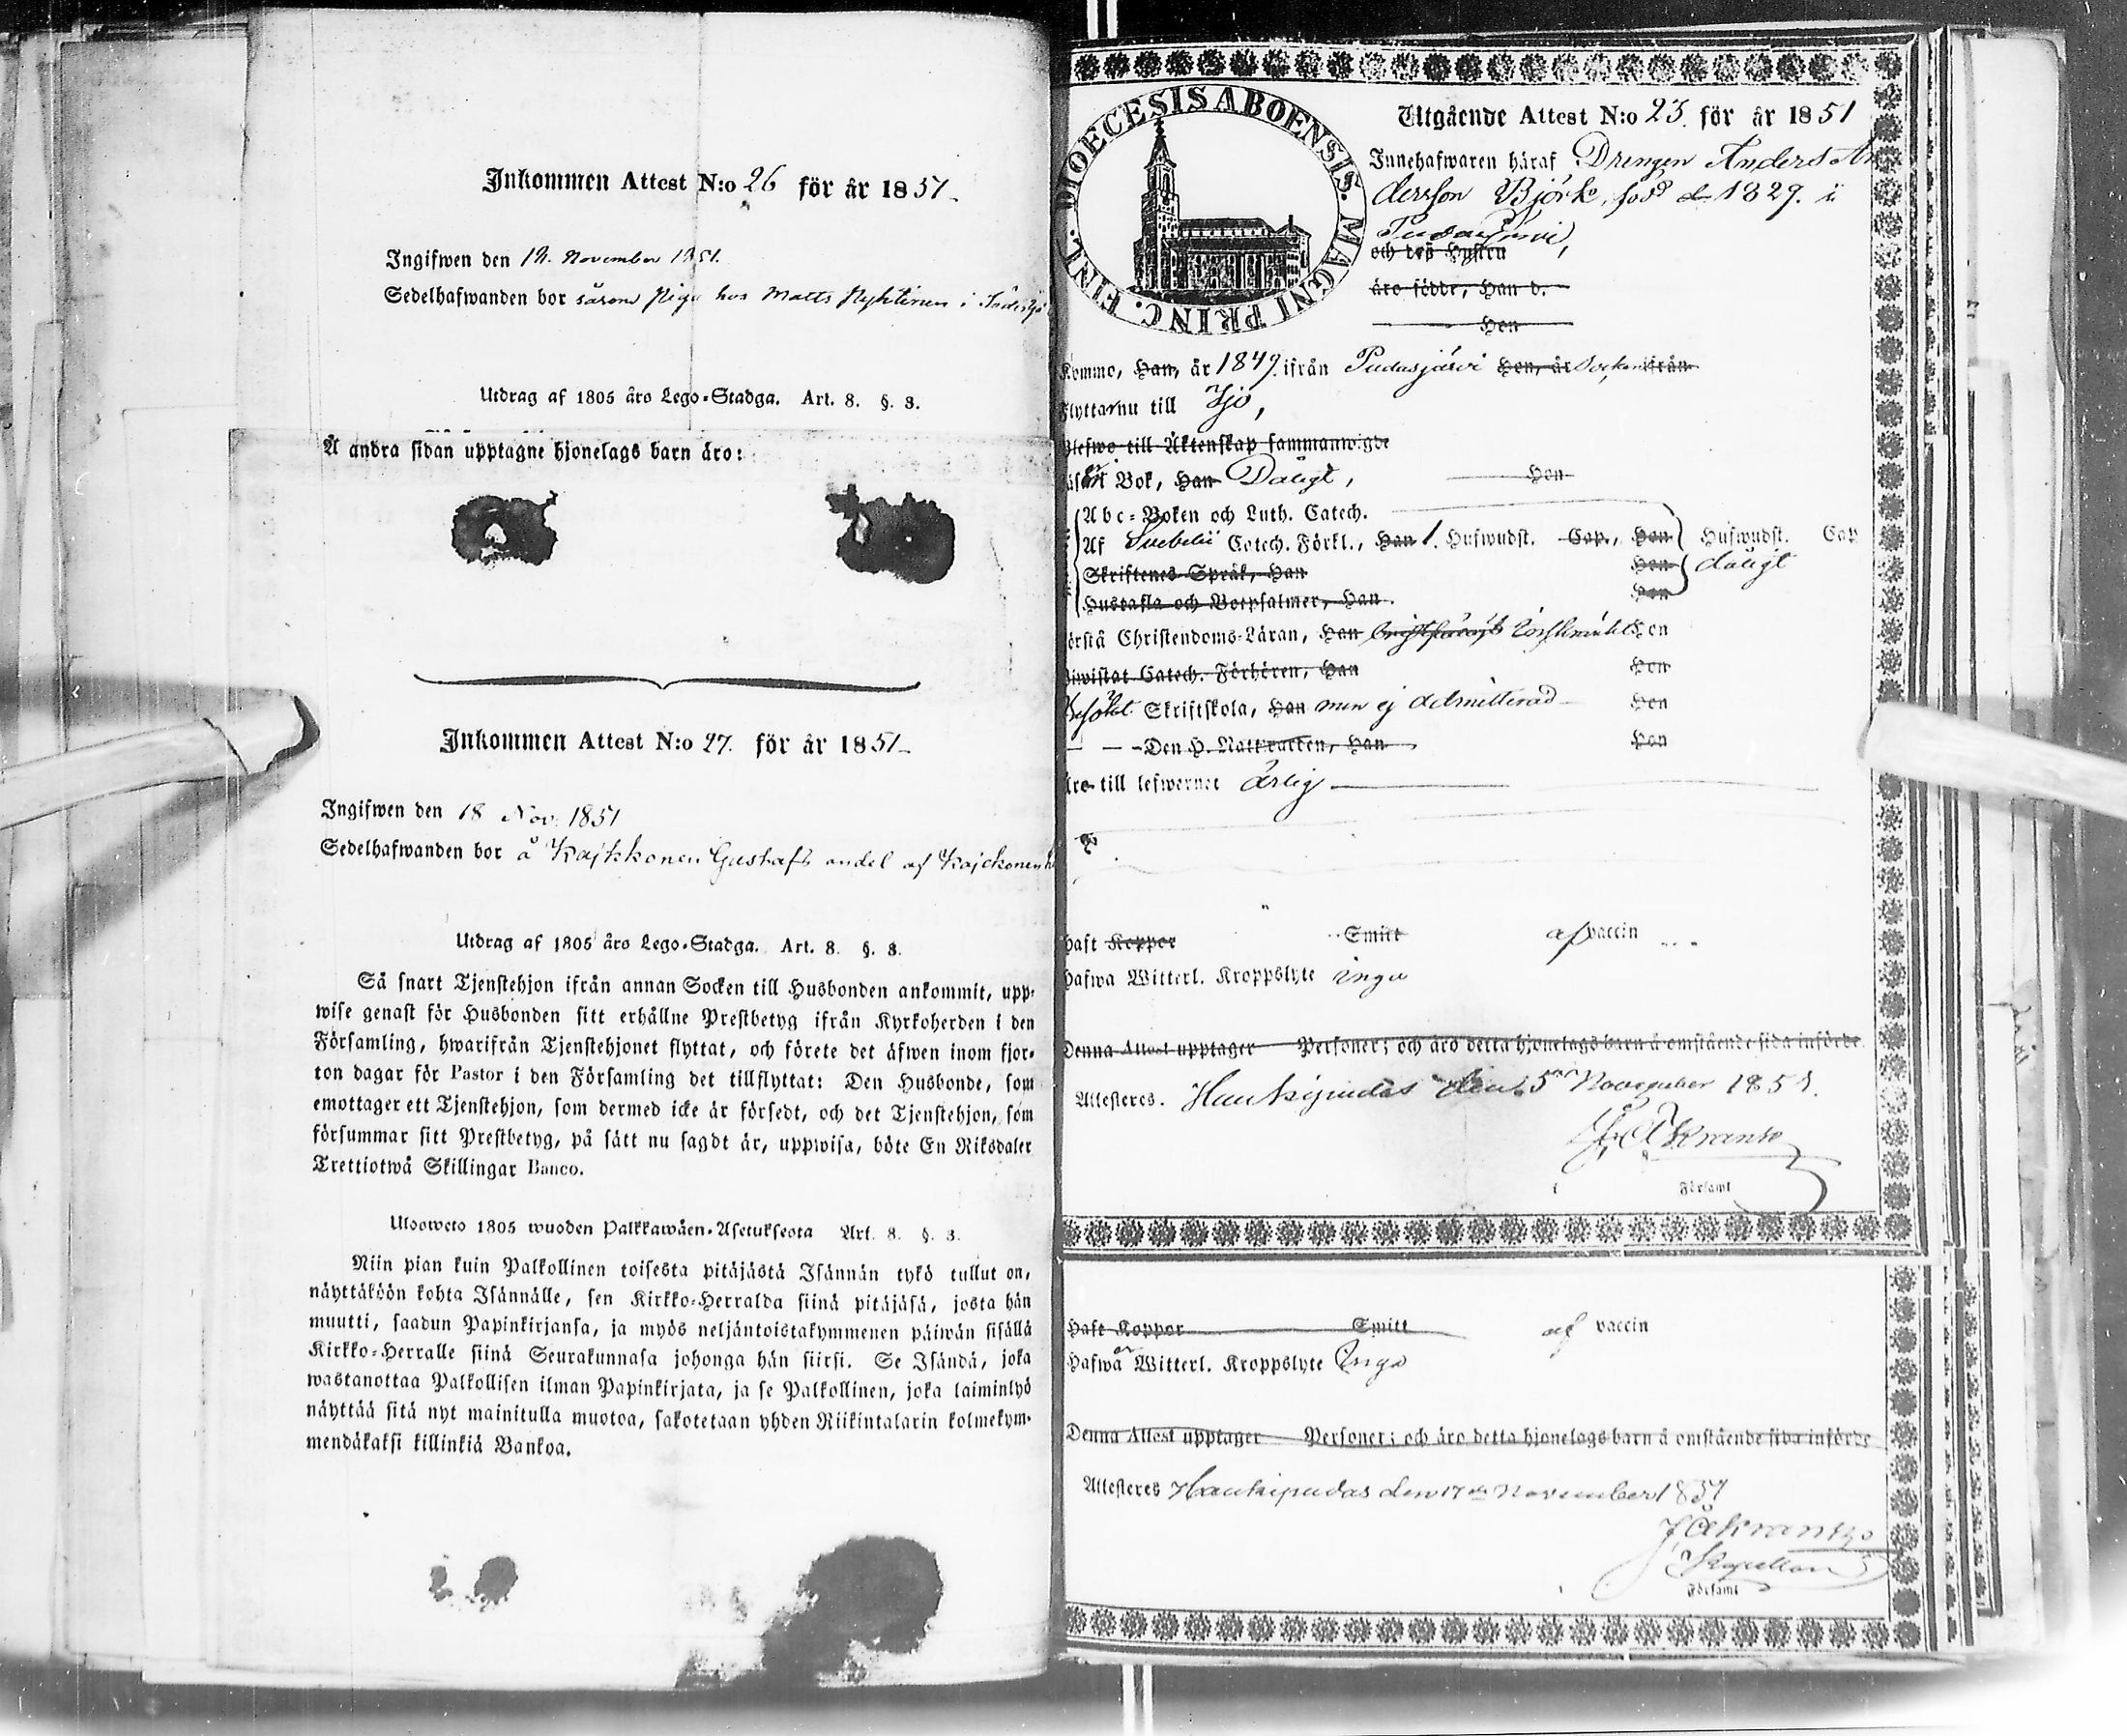 Inkommen Attest N:o 26 för år 1851
Ingifwen den 12. November 1851.
Sedelhafwanden bor såsom Piga hos Matts Nykänen i
Utdrag af 1805 års Lego-Stadga. Art. 8. §. 3.
Å andra sidan upptagne hjonelags barn äro:
Inkommen Attest N:o 27. för år 1851
Ingifwen den 18 Nov. 1851
Sedelhafwanden bor å Kajkkonen Gustafs andel af
Utdrag af 1805 års Lego-Stadga. Art. 8. §. 3.
Så snart Tjenstehjon ifrån annan Socken till Husbonden ankommit, upp-
wise genast för Husbonden sitt erhållne Prestbetyg ifrån Kyrkoherden i den
Församling, hwarifrån Tjenstehjonet flyttat, och förete det äfwen inom fjor-
ton dagar för Pastor i den Församling det tillflyttat: Den Husbonde, som
emottager ett Tjenstehjon, som dermed icke är försedt, och det Tjenstehjon, som
försummar sitt Prestbetyg, på sätt nu sagdt är, uppwisa, böte En Riksdaler
Trettiotwå Skillingar Banco.
Ulosweto 1805 wuoden Palkkawäen-Asetuksesta Art. 8. §. 3.
Niin pian kuin Palkollinen toisesta pitäjästä Isännän tykö tullut on,
näyttäköön kohta Isännälle, sen Kirkko-Herralda siinä pitäjäsä, josta hän
muutti, saadun Papinkirjansa, ja myös neljäntoistakymmenen päiwän sisällä
Kirkko-Herralle siinä Seurakunnasa johonga hän siirsi. Se Isändä, joka
wastanottaa Palkollisen ilman Papinkirjata, ja se Palkollinen, joka laiminlyö
näyttää sitä nyt mainitulla muotoa, sakotetaan yhden Riikintalarin kolmekym-
mendäkaksi killinkiä Bankoa.
DIOECESIS ABOENSIS. MAGNI PRINC. FINL.
Utgående Attest N:o 23. för år 1851
Innehafwaren häraf Drengen Anders An
dersson Björk, född 1829. i
Pudasjärvi,
och des Hustru
äro födde, Han d.
Hon
Kommo, Han, år 1849. ifrån Pudasjärvi Hon, år Socken ifrån
Flytta nu till Ijo,
Blefwo till Äktenskap sammanwigde
Bok, Han Dåligt, Hon
Abc-Boken och Luth. Catech.
Af Svebelii Catech. Förkl., Han 1. Hufwudst. Cap., Hon Hufwudst. Cap
Skriftenes Språk, Han Hon dåligt
Hustafla och Botpsalmer, Han. Hon
Förstå Christendoms-Läran, Han Hon
Biwistat Catech. Förhören, Han Hon
Besökt Skriftskola, Han men ej admitterad Hon
Den H. Nattvarden, Han Hon
Äro till lefwernet ärlig
Haft Koppor Smitt af vaccin
Hafwa Witterl. Kroppslyte inga
Denna Attest upptager Personer; och äro detta hjonelags barn å omstående sida införde.
Attesteres. Haukipudas den 5 November 1851.
J. A. Krantz
i Församl
Haft Koppor Smitt af vaccin
Hafwa Witterl. Kroppslyte Inga
Denna Attest upptager Personer; och äro detta hjonelags barn å omstående sida införde
Attesteres Haukipudas den 17 de November 1851
J A Krantz
Kapellan
i Församl